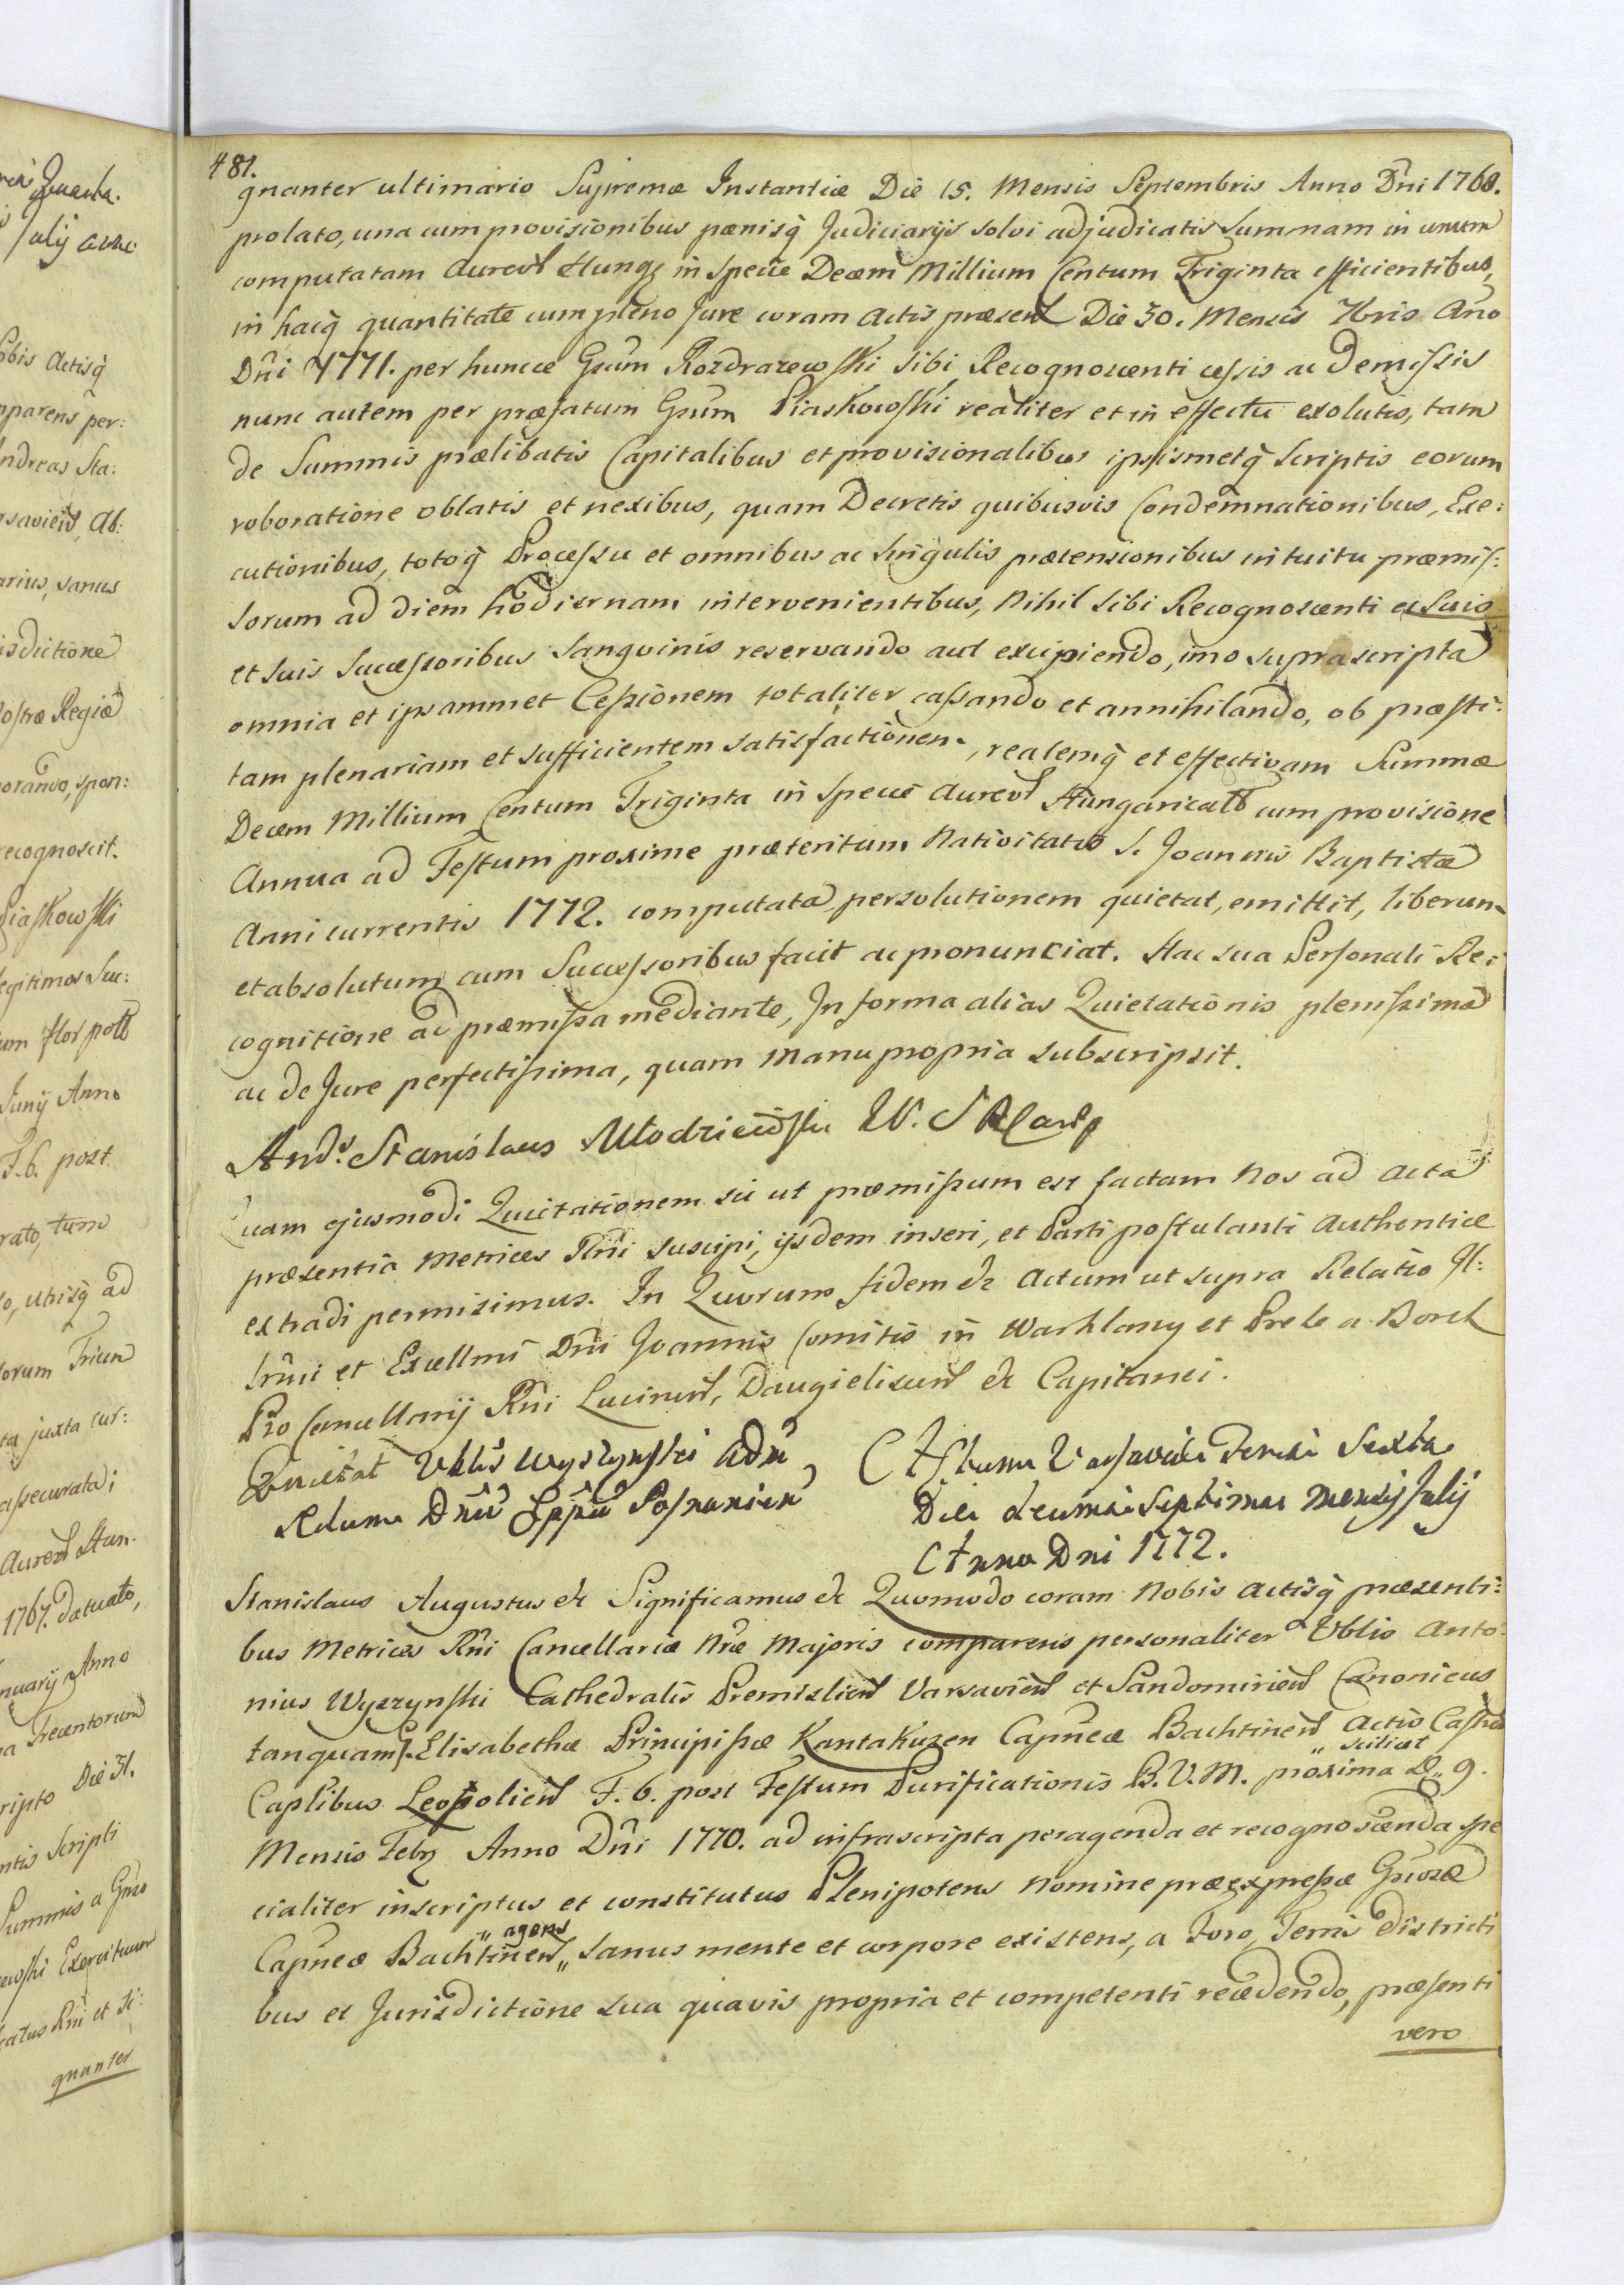 481.
gnanter ultimario Supremæ Instantiæ Die 15. Mensis Septembris Anno Dni 1768.
prolato, una cum provisionibus pænisq̃ Judiciarijs solvi adjudicatis Summam in unum
computatam Aureor Hung in specie Decem Millium Centum Triginta efficientibus,
in hacq̃ quantitate cum pleno Jure coram Actis præsent Die 30. Mensis Xbris Ano
Dni 1771. per huncce Gsum Rozdrazewski sibi Recognoscenti cessis ac Demissis
nunc autem per præfatum Gsum Piaskowski realiter et in effectu exolutis, tam
de Summis prælibatis Capitalibus et provisionalibus ipsismetq̃ Scriptis eorum
roboratione oblatis et nexibus, quam Decretis quibusvis Condemnationibus, Exe:
cutionibus, totoq̃ Processu et omnibus ac singulis prætensionibus intuitu præmis:
sorum ad diem hodiernam intervenientibus, Nihil sibi Recognoscenti ex suis
et suis Successoribus sangvinis reservando aut excipiendo, imo suprascripta
omnia et ipsammet Cessionem totaliter cassando et annihilando, ob præsti:
tam plenariam et sufficientem satisfactionem, realemq̃ et effectivam Summæ
Decem Millium Centum Triginta in specie Aureor Hungarical cum provisione
Annua ad Festum proxime præteritum Nativitatis S. Joannis Baptistæ
Anni currentis 1772. computata, persolutionem quietat, emittit, liberum
et absolutum cum Successoribus facit ac pronunciat. Hac sua Personali Re:
cognitione ad præmissa mediante, In forma alias Quietationis plenissima
ac de Jure perfectissima, quam manu propria subscripsit.
And: Stanislaus Młodzieiowski
Quam ejusmodi Quietationem sic ut præmissum est factam Nos ad Acta
præsentia Metrices Rni suscipi, ijsdem inseri, et Parti postulanti Authentice
extradi permisimus. In Quorum fidem &c Actum ut supra Relatio Il:
lrmi et Excellmi Dni Joannis Comitis in Warklany et Prele a Borch
Pro Cancellarij Rni Lucinen, Daugieliscen &c Capitanei.
Quietat Vblis Wyszynski Adm
Rdum Dnum Eppum Posnanien
Actum Varsaviæ Feria Sexta
Die Decima Septima Mensis Julij
Anno Dni 1772.
Stanislaus Augustus &c Significamus &c Quomodo coram Nobis Actisq̃ præsenti:
bus Metrices Rni Cancellariæ Nræ Majoris comparens personaliter Vblis Anto:
nius Wyszynski Cathedralis Premislien Varsavien et Sandomirien Canonicus
tanquam Elisabethæ Principissæ Kantakuzen Capneæ Bachtinen Actis Castren
Caplibus Leopolien F. 6. post Festum Purificationis B. V. M. proxima „ scilicet D„ 9.
Mensis Febr Anno Dni 1770. ad infrascripta peragenda et recognoscenda spe
cialiter inscriptus et constitutus Plenipotens Nomine præexpressæ Gsosæ
Capneæ Bachtinen „ agens „ sanus mente et corpore existens, a Foro, Terris Districti
bus et Jurisdictione sua quavis propria et competenti recedendo, præsenti
vero